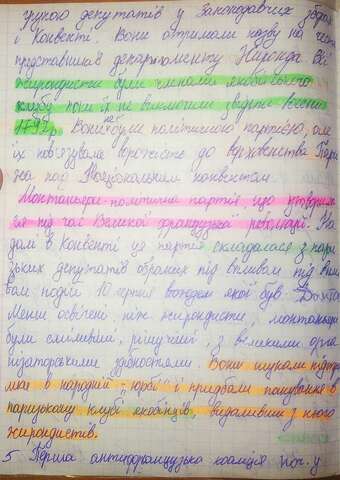 групою депутатів у Законодавчих зборах
і Конвенті. Вони отримали назву на честь
представників департаменту Жиронда. Всі
жирондисти були членами якобінського
клубу поки їх не виключили звідти восени
1792р. Вони не були політичною партією, але
їх пов'язувала ворожість до верховенства Пари
жа над Національним конвентом.
Монтаньяри-політична партія що утворила
ся під час Великої французької революції. На
далі в Конвенті ця партія складалася з пари
зьких депутатів обраних під впливом під впли
вом подій 10 серпня вождем якої був Дантон
Менш освічені ніж жирондисти, монтаньяри
були сміливіші, рішучіші, з великими орга
нізаторськими здібностями. Вони шукали підтри
мки в народній - юрбі і придбали панування в
паризькому клубі якобінців, видаливши з нього
жирондистів.
5. Перша антифранцузька коаліція поч. у